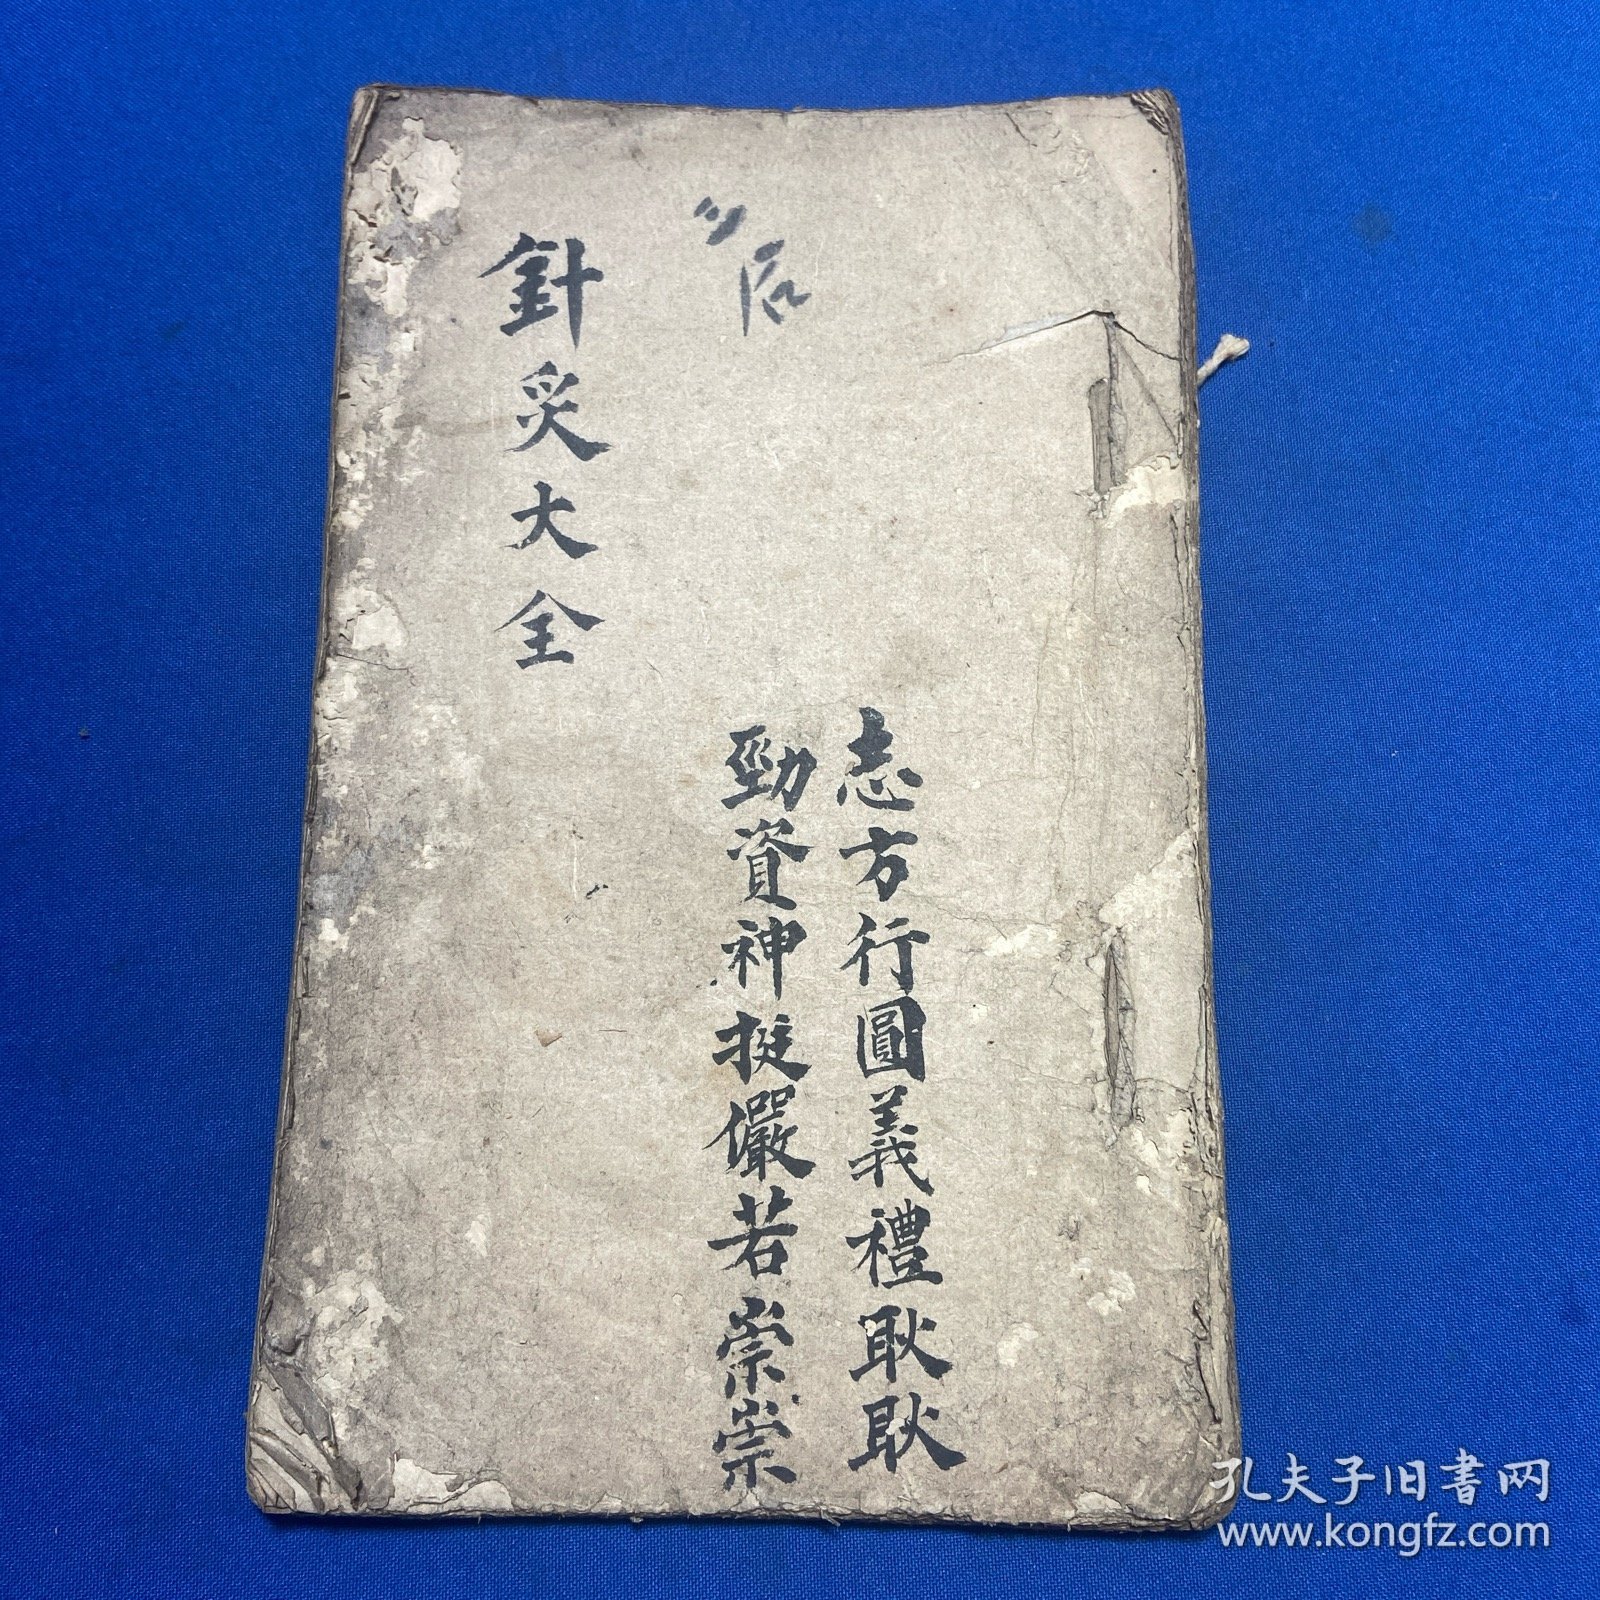 志方行圓義禮耿耿
勁資神挺儼若崇崇
后
針炙大全
孔夫子旧書网
www.kongfz.com